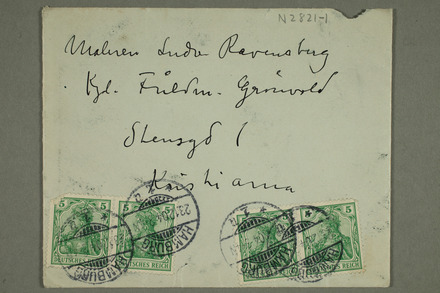 N2821-1
Maleren Ludv. Ravensberg
Kgl. Fuldm. Grönvold
Stensgd 1
Kristiania
5 5 5 5 5
HAMBURG HAMBURG HAMBURG
DEUTSCHES REICH DEUTSCHES REICH